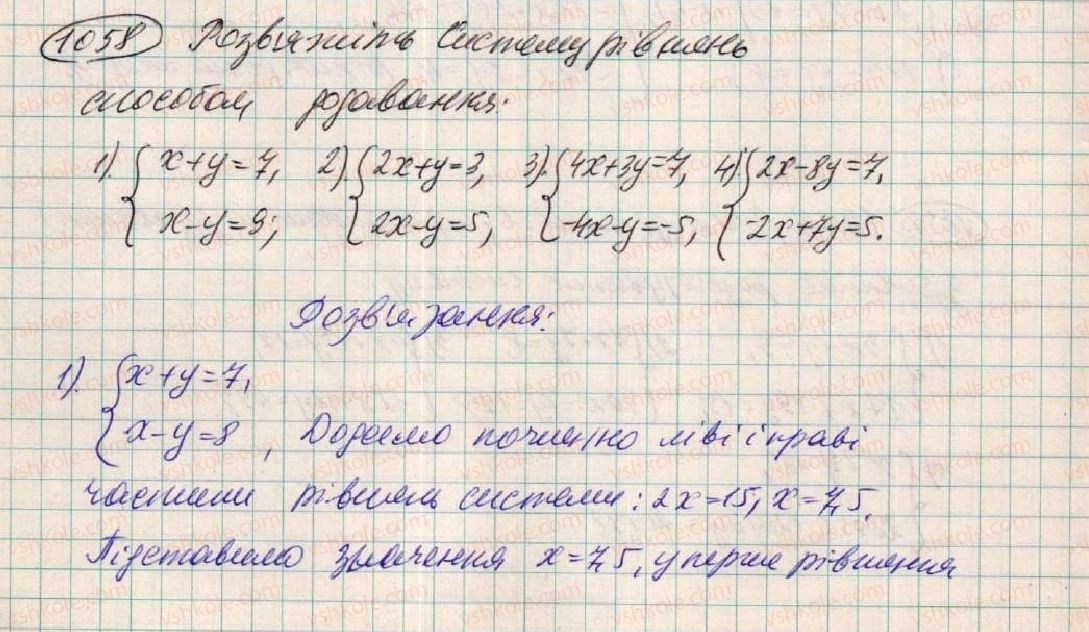 1058 Розв'яжіть систему рівнянь
способом додавання:
1). { x+y=7, 2). { 2x+y=3, 3). { 4x+3y=7, 4). { 2x-8y=7,
x-y=9; 2x-y=5, -4x-y=-5, -2x+7y=5.
Розв'язання:
1). { x+y=7,
x-y=8, Додаємо почленно ліві і праві
частини рівнянь системи: 2x=15, x=7,5.
Підставимо значення x=7,5, у перше рівняння